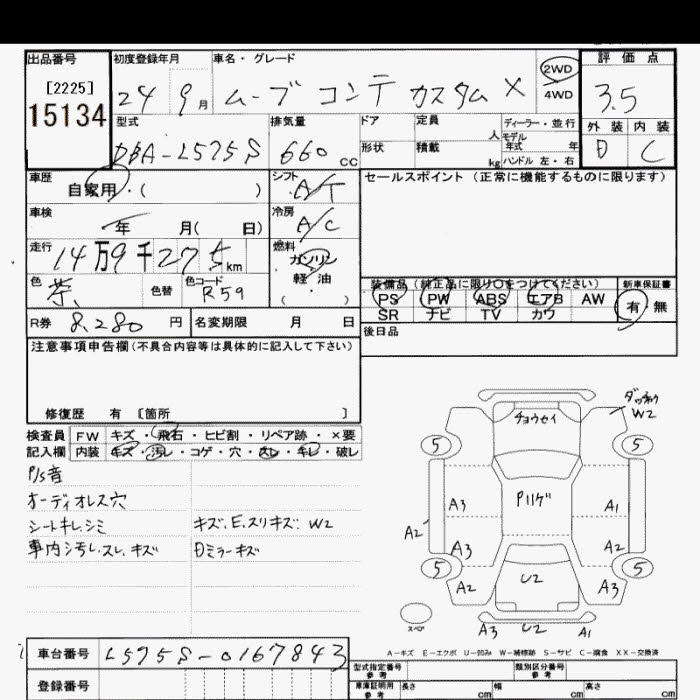 出品番号 初度登録年月 車名・グレード 2WD 評価点
[2225] 24 9月 ムーブ コンテ カスタム X 4WD 3.5
15134 型式 排気量 ドア 定員 人 ディーラー・並行 モデル 年式 年 外装 内装
DBA-L575S 660cc 形状 積載 kg ハンドル 左・右 D C
車歴 シフト セールスポイント (正常に機能するものに限ります)
自家用・( ) A/T
車検 冷房
年 月( 日) A/C
走行 燃料
14万9千275km ガソリン
軽油
( )
色 色替 色コード 装備品 (純正品に限り〇をつけてください) 新車保証書
茶 R59 PS PW ABS エアB AW 有 無
SR ナビ TV カワ
R券 8,280 円 名変期限 月 日 後日品
注意事項申告欄(不具合内容等は具体的に記入して下さい)
修復歴 有 [箇所 ]
検査員 FW キズ・飛石・ヒビ割・リペア跡・×要
記入欄 内装 キズ・汚レ・コゲ・穴・スレ・キレ・破レ
P/S音
オーディオレス穴
シートキレ、シミ キズ、E、スリキズ:W2
車内汚レ、スレ、キズ Dミラーキズ
チョウセイ W2
5 5
A3 Pハゲ A1
A2
A3 A2
5 5
A2 U2 A3
スペア A3 U2 A1
A-キズ E-エクボ U-凹み W-補修跡 S-サビ C-腐食 XX-交換済
車台番号 L575S-0167843 型式指定番号 参考 類別区分番号 参考
登録番号 車庫証明用 参考 長さ cm 幅 cm 高さ cm